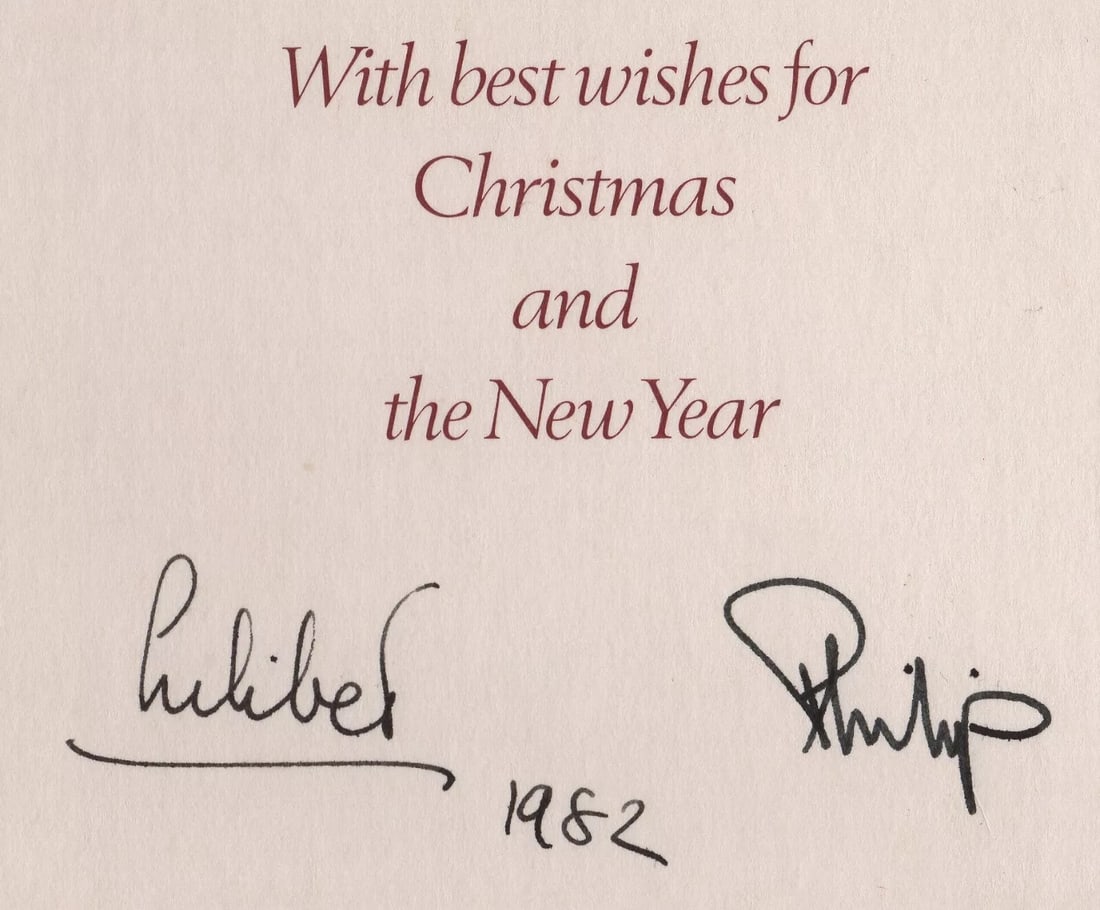 With best wishes for
Christmas
and
the New Year
Lilibet
Philip
1982